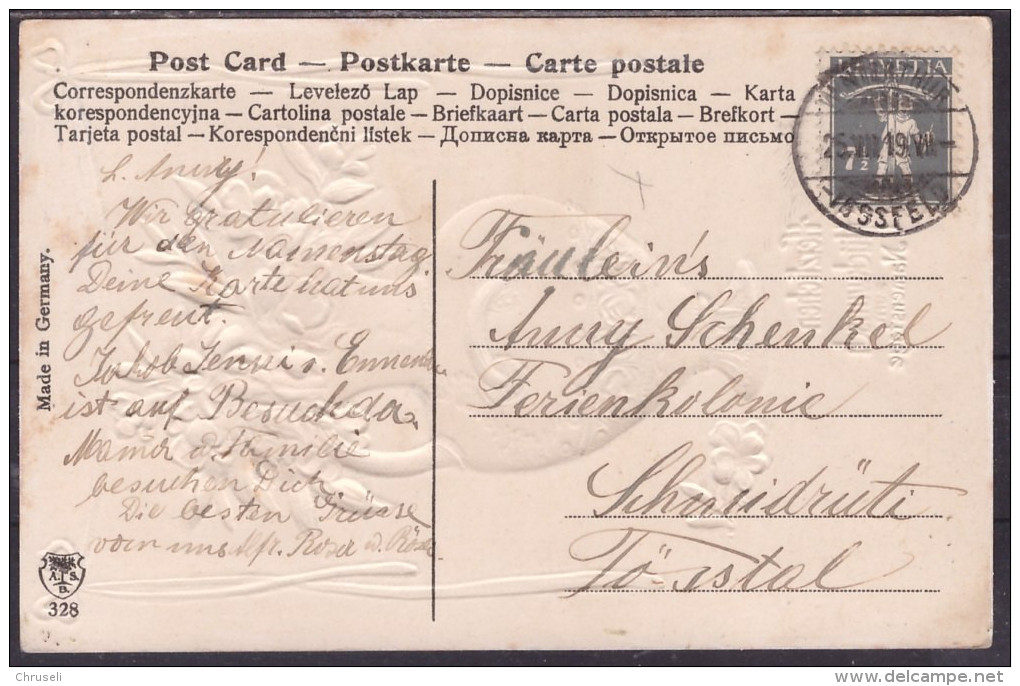 Post Card — Postkarte — Carte postale
Correspondenzkarte — Levelező Lap — Dopisnice — Dopisnica — Karta
korespondencyjna — Cartolina postale — Briefkaart — Carta postala — Brefkort —
Tarjeta postal — Korespondenčni listek — Дописна карта — Открытое письмо
HELVETIA
7½
25.VIII.19
VII
TÖSSFELD
L. Anny!
Wir gratulieren
für den Namenstag
Deine Karte hat uns
gefreut.
Jakob Jenni
ist auf Besuch da
Mama d. Familie
besuchen Dich
Die besten Grüsse
von uns Rosa
Fräulein's
Anny Schenkel
Ferienkolonie
Schmidrüti
Tösstal
Made in Germany.
A.I.S.
B.
328
Chruseli
delcampe.net